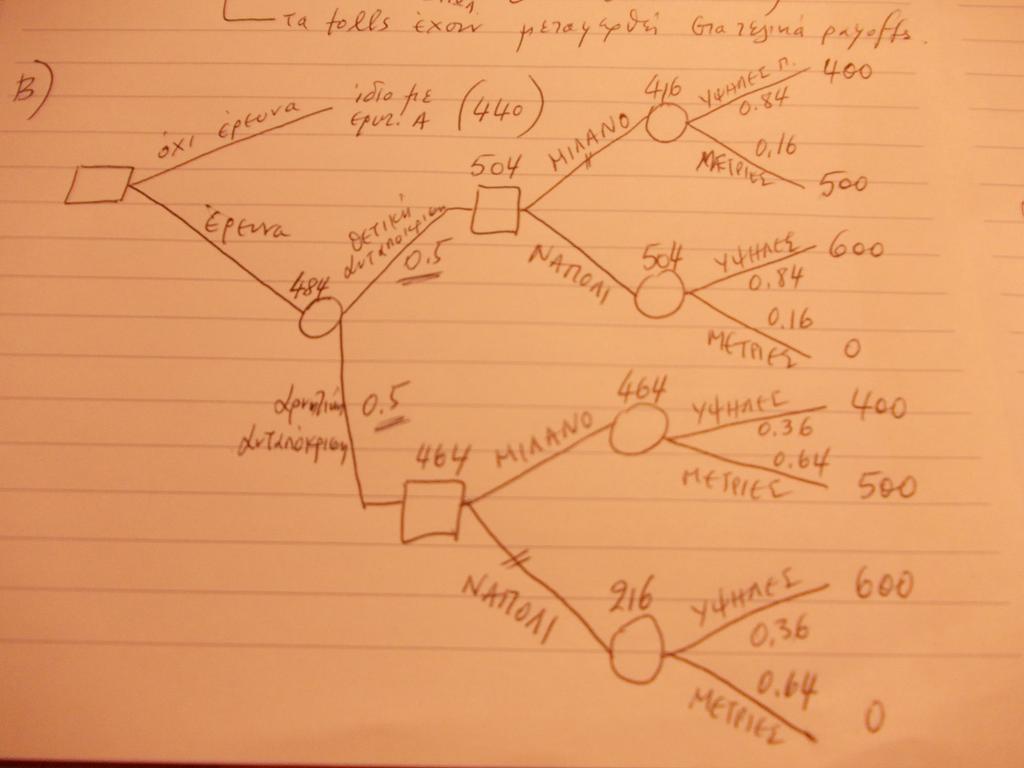 τα tolls έχουν μεταφερθεί στα τελικά payoffs.
Β)
όχι έρευνα
ίδιο με
ερωτ. Α (440)
Έρευνα
484
θετική
ανταπόκριση
0.5
504
ΜΙΛΑΝΟ
416
ΥΨΗΛΕΣ Π.
0.84
400
0,16
ΜΕΤΡΙΕΣ
500
ΝΑΠΟΛΙ
504
ΥΨΗΛΕΣ
0.84
600
0.16
ΜΕΤΡΙΕΣ
0
αρνητική
ανταπόκριση
0.5
464
ΜΙΛΑΝΟ
464
ΥΨΗΛΕΣ
0.36
400
0.64
ΜΕΤΡΙΕΣ
500
ΝΑΠΟΛΙ
216
ΥΨΗΛΕΣ
0,36
600
0.64
ΜΕΤΡΙΕΣ
0